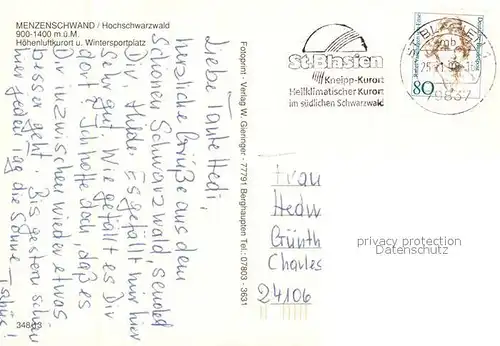 MENZENSCHWAND / Hochschwarzwald
900-1400 m.ü.M.
Höhenluftkurort u. Wintersportplatz
Liebe Tante Hedi,
herzliche Grüße aus dem
schönen Schwarzwald, sendet
Dir, Hilde. Es gefällt mir hier
sehr gut. Wie gefällt es Dir
dort? Ich hoffe doch, daß es
Dir inzwischen wieder etwas
besser geht. Bis gestern schien
hier jeden Tag die Sonne
348-13
Fotoprint - Verlag W. Gieringer - 77791 Berghaupten Tel.: 07803 - 3631
St. Blasien
Kneipp-Kurort
Heilklimatischer Kurort
im südlichen Schwarzwald
ST BLASIEN
79837
80
Deutsche Bundespost
Frau
Hedw
Günth
Charles
24106
privacy protection
Datenschutz